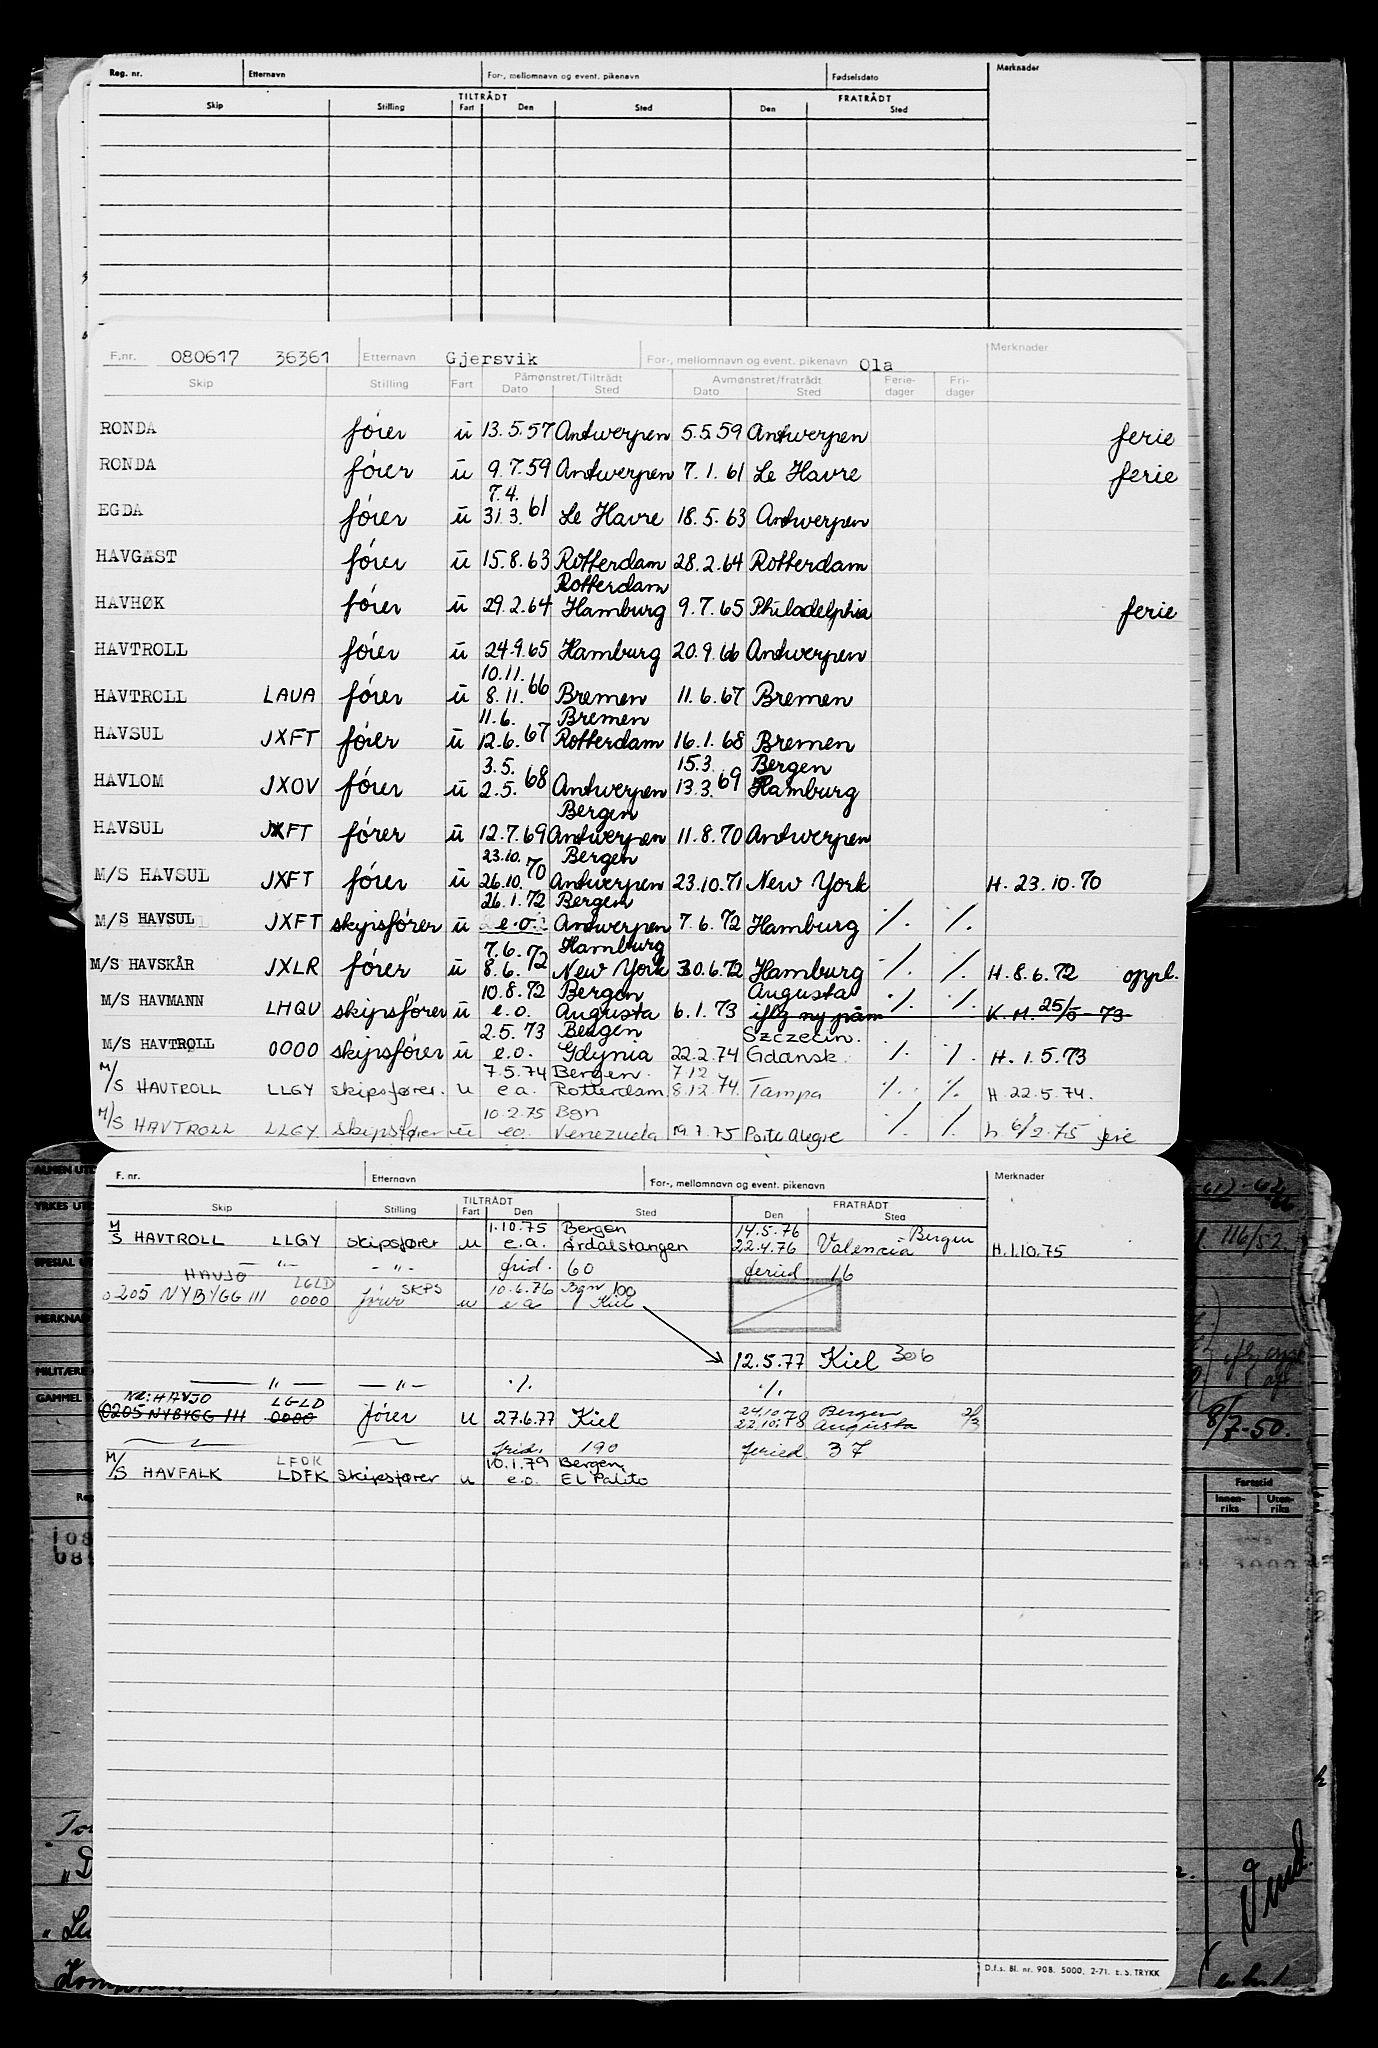 Reg. nr. Etternavn For-, mellomnavn og event. pikenavn Fødselsdato Merknader
TILTRÅDT FRATRÅDT
Skip Stilling Fart Den Sted Den Sted
F.nr. 080617 36361 Etternavn Gjersvik For-, mellomnavn og event. pikenavn Ola Merknader
Skip Stilling Fart Påmønstret/Tiltrådt Dato Sted Avmønstret/fratrådt Dato Sted Ferie-dager Fri-dager
RONDA fører u 13.5.57 Antwerpen 5.5.59 Antwerpen ferie
RONDA fører u 9.7.59 Antwerpen 7.1.61 Le Havre ferie
7.4.
EGDA fører u 31.3.61 Le Havre 18.5.63 Antwerpen
HAVGAST fører u 15.8.63 Rotterdam 28.2.64 Rotterdam
Rotterdam
HAVHØK fører u 29.2.64 Hamburg 9.7.65 Philadelphia ferie
HAVTROLL fører u 24.9.65 Hamburg 20.9.66 Antwerpen
10.11.
HAVTROLL LAUA fører u 8.11.66 Bremen 11.6.67 Bremen
11.6. Bremen
HAVSUL JXFT fører u 12.6.67 Rotterdam 16.1.68 Bremen
3.5. 15.3. Bergen
HAVLOM JXOV fører u 2.5.68 Antwerpen 13.3.69 Hamburg
Bergen
HAVSUL JXFT fører u 12.7.69 Antwerpen 11.8.70 Antwerpen
23.10. Bergen
M/S HAVSUL JXFT fører u 26.10.70 Antwerpen 23.10.71 New York H. 23.10.70
26.1.72 Bergen
M/S HAVSUL JXFT skipsfører u e.o. Antwerpen 7.6.72 Hamburg ./. ./.
7.6.72 Hamburg
M/S HAVSKÅR JXLR fører u 8.6.72 New York 30.6.72 Hamburg ./. ./. H. 8.6.72 oppl.
10.8.72 Bergen Augusta
M/S HAVMANN LHQU skipsfører u e.o. Augusta 6.1.73 iflg ny påm ./. ./. K.M. 25/5-73
2.5.73 Bergen Szczecin.
M/S HAVTROLL 0000 skipsfører u e.o. Gdynia 22.2.74 Gdansk. ./. ./. H. 1.5.73
7.5.74 Bergen. 7.12
M/S HAVTROLL LLGY skipsfører. u e.a. Rotterdam 8.12.74. Tampa ./. ./. H 22.5.74.
10.2.75 Bgn
M/S HAVTROLL LLGY skipsfører u eo. Venezuela 19.7.75 Porto Alegre ./. ./. h 6/2.75 ferie
F. nr. Etternavn For-, mellomnavn og event. pikenavn Merknader
TILTRÅDT FRATRÅDT
Skip Stilling Fart Den Sted Den Sted
1.10.75 Bergen 14.5.76 Bergen
M/S HAVTROLL LLGY skipsfører u e.a. Årdalstangen 22.4.76 Valencia H.1.10.75
-"- -"- frid. 60 feried. 16
HAVJO LGLD SKPS 10.6.76 Bgn 100
0205 NYBYGG III 0000 fører u e a Kiel
12.5.77 Kiel 306
-"- -"- ./. ./.
Nå: HAVJO LGLD 24.10. Bergen
0205 NYBYGG III 0000 fører u 27.6.77 Kiel 22.10.78 Augusta
frid. 190 feried. 37
LFDK 10.1.79 Bergen
M/S HAVFALK LDFK skipsfører u e.o. El Palito
D.f.s. Bl. nr. 908. 5000. 2-71. E.S. TRYKK
116/52.
8/7-50.
Fartstid
Innen-riks Uten-riks